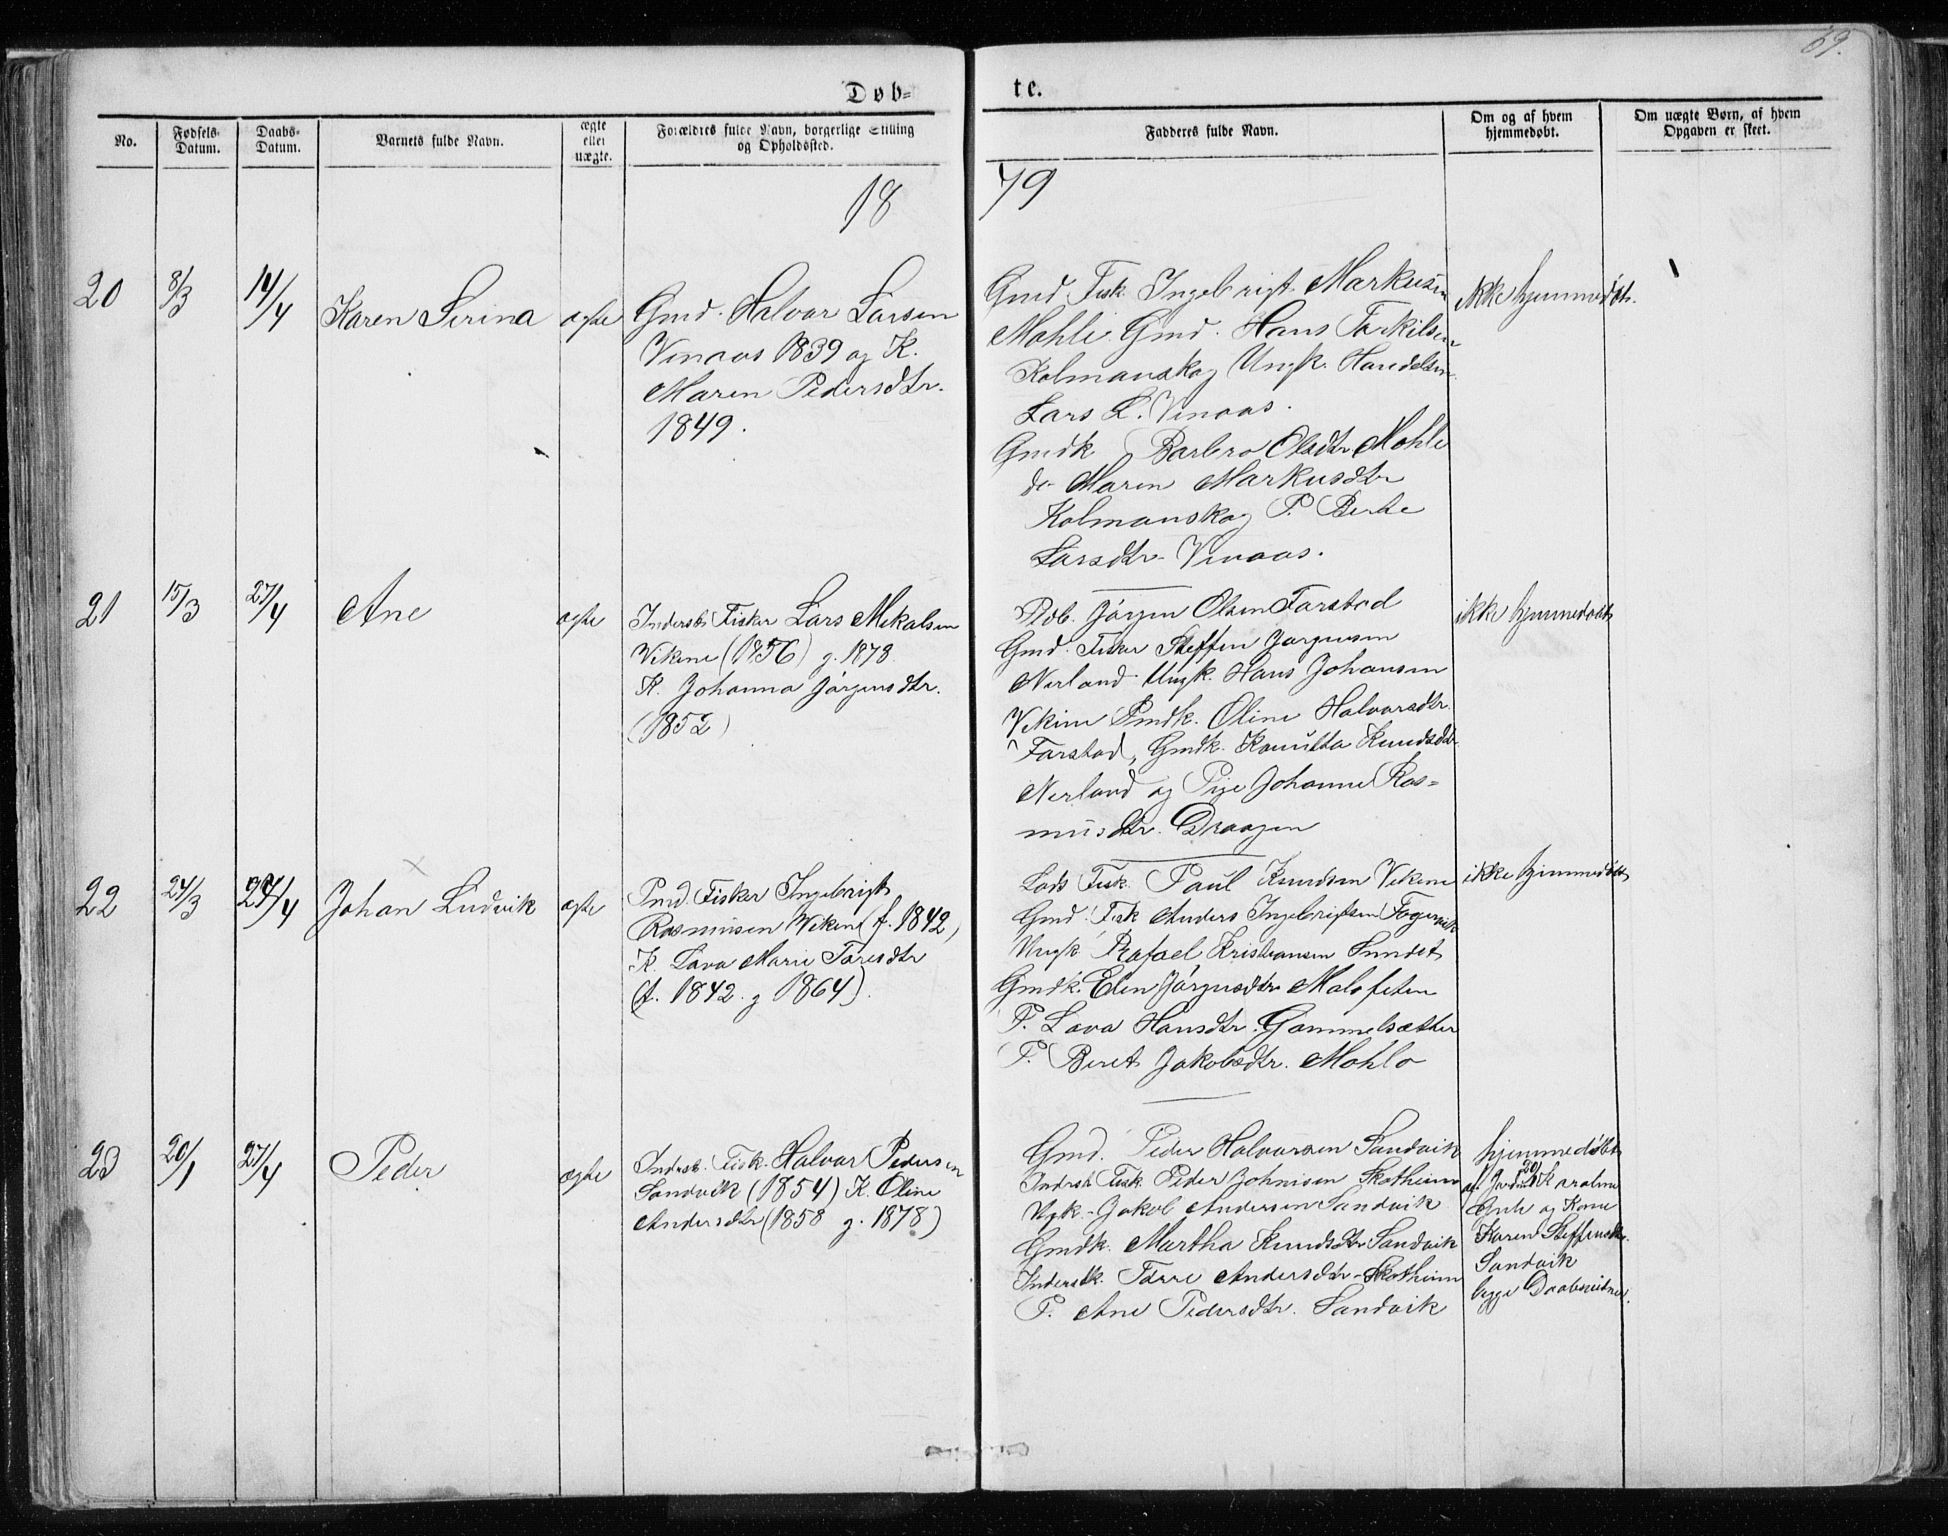 69.
Døb-
te.
No.
Fødsels-
Datum.
Daabs-
Datum.
Barnets fulde Navn.
ægte
eller
uægte.
Forældres fulde Navn, borgerlige Stilling
og Opholdssted.
Fadderes fulde Navn.
Om og af hvem
hjemmedøbt.
Om uægte Børn, af hvem
Opgaven er skeet.
18
79
20
8/3
14/4
Karen Serina
ægte
Gmd. Halvar Larsen
Vinaas 1839 og K.
Maren Pedersdtr.
1849.
Gmd. Fisk. Ingebrigt Markusen
Mohle Gmd. Hans Torkilsen
Kolmanskog Ungk. Handelsm.
Lars L. Vinaas.
Gmdk Barbro Olsdtr Mohle
do Maren Markusdtr
Kolmanskog P. Berte
Larsdtr. Vinaas.
ikke hjemmedøbt.
21
15/3
27/4
Ane
ægte
Inderst Fisker Lars Mikalsen
Vikene (1856) g. 1878
K. Johanna Jørgensdtr.
(1852)
Pdb. Jørgen Olsen Farstad
Gmd. Fisker Steffen Jørgensen
Nerland Ungk. Hans Johansen
Vikene Pmdk. Oline Halvarsdtr.
Farstad, Gmdk. Knutta Knudsdtr
Nerland og Pige Johanne Ras=
musdtr. Draagen
ikke hjemmedøbt
22
24/3
27/4
Johan Ludvik
ægte
Pmd. Fisker Ingebrigt
Rasmusen Viken (f. 1842)
K. Lava Marie Toresdtr
(f. 1842 g 1864).
Lods Fisk. Paul Knudsen Vikene
Gmd. Fisk Anders Ingebrigtsen Fogervik
Ungk. Rafael Kristiansen Sundet
Gmdk. Elen Jørgensdtr Malefeten
P. Lava Hansdtr. Gammelsæther
P. Beret Jakobsdtr. Mohlo
ikke hjemmedøbt
23
20/1
27/4
Peder
ægte
Inderst. Fisk. Halvar Pedersen
Sandvik (1854) K. Oline
Andersdtr (1858 g. 1878)
Gmd. Peder Halvarsen Sandvik
Inderst Fisk. Peder Johnisen Skotheim
Ugk. Jakob Andersen Sandvik
Gmdk. Martha Knudsdtr Sandvik
Inderstk. Tarre Andersdtr. Skotheim
P. Ane Pedersdtr. Sandvik
hjemmedøbt
20/1
af Jordm. Karoline
og Kone
Karen Steffensdtr.
Sandvik
begge Daabsvidner.